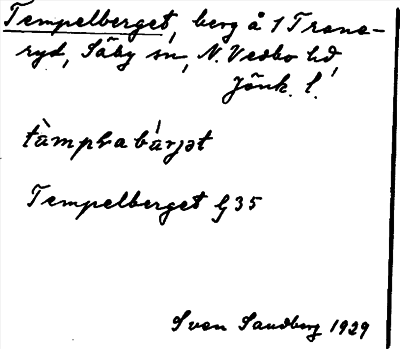 Tempelberget, berg å 1 Trane-
ryd, Säby sn, N. Vedbo hd
Jönk. l.
Tempelberget G 35
Sven Sandberg 1929